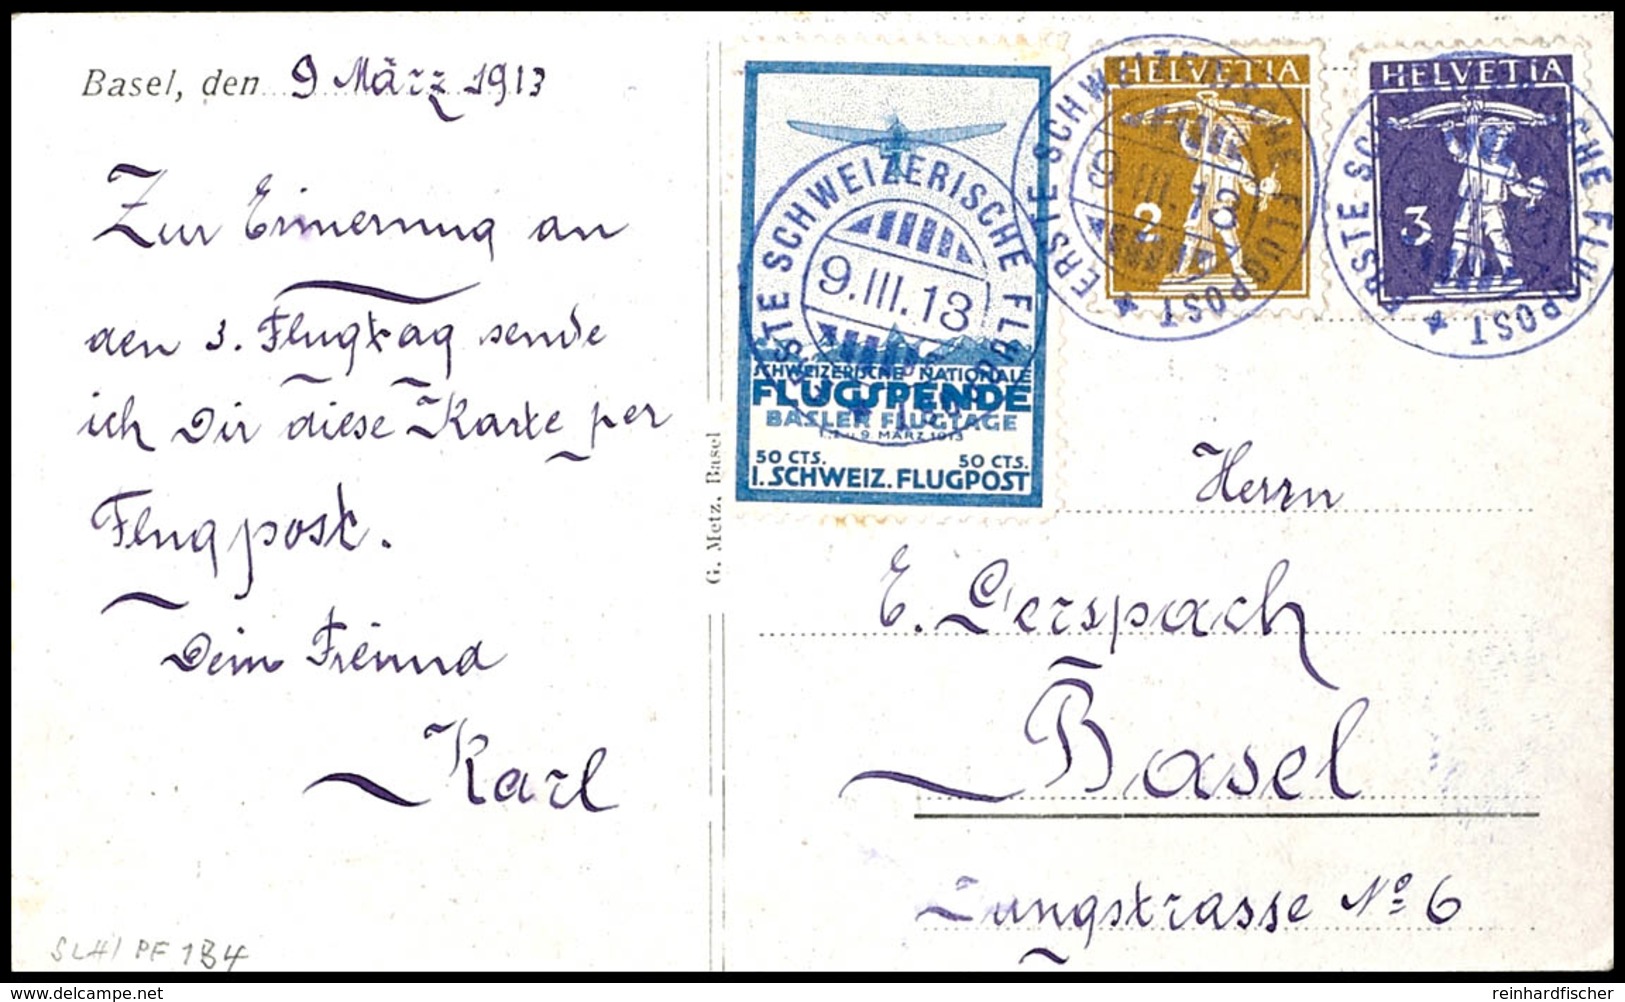 Basel, den 9 März 1913
Zur Erinnerung an
den 3. Flugtag sende
ich Dir diese Karte per
Flugpost.
Dein Freund
Karl
SLH/ PF 1B4
G. Metz, Basel
SCHWEIZERISCHE NATIONALE
FLUGSPENDE
BASLER FLUGTAGE
9. MÄRZ 1913
50 CTS. 50 CTS.
I. SCHWEIZ. FLUGPOST
ERSTE SCHWEIZERISCHE FLUGPOST
9.III.13
HELVETIA
2
ERSTE SCHWEIZERISCHE FLUGPOST
9.III.13
HELVETIA
3
ERSTE SCHWEIZERISCHE FLUGPOST
Herrn
E. Gerspach
Basel
Jungstrasse No 6
© delcampe.net
reinhardfischer